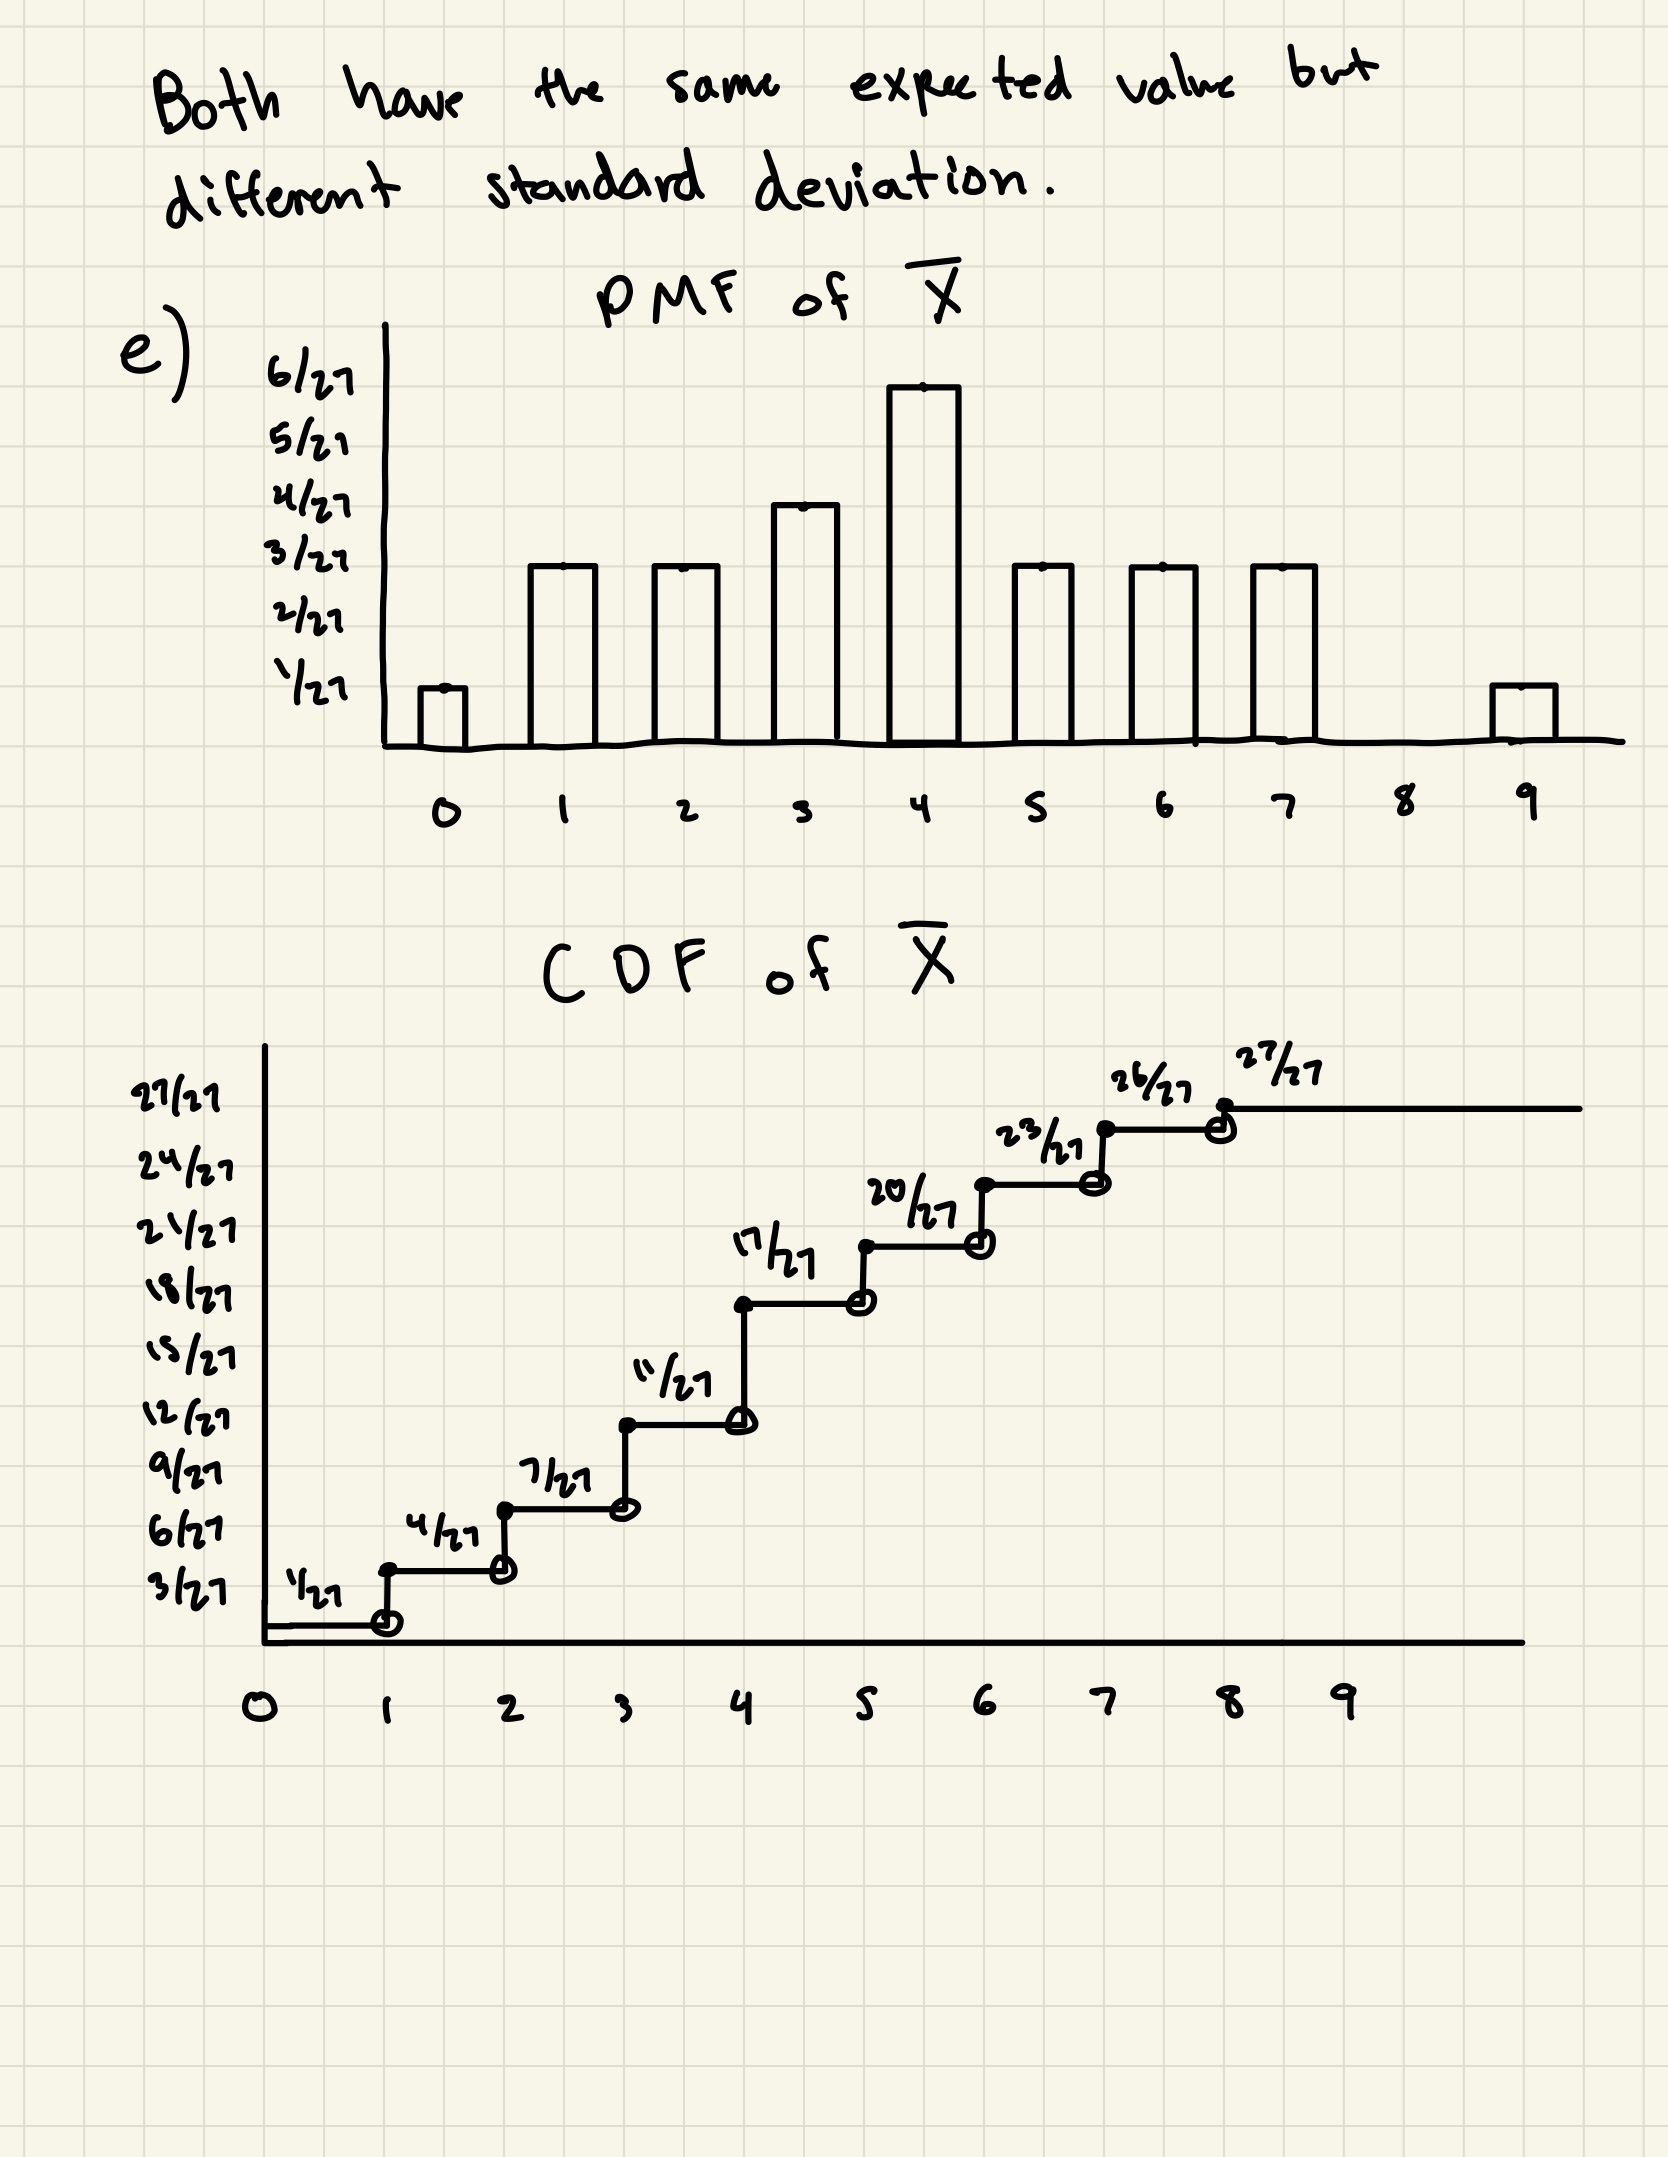 Both have the same expected value but
different standard deviation.
PMF of X̅
e)
6/27
5/27
4/27
3/27
2/27
1/27
0 1 2 3 4 5 6 7 8 9
CDF of X̅
27/27
24/27
21/27
18/27
15/27
12/27
9/27
6/27
3/27
1/27
4/27
7/27
11/27
17/27
20/27
23/27
26/27
27/27
0 1 2 3 4 5 6 7 8 9